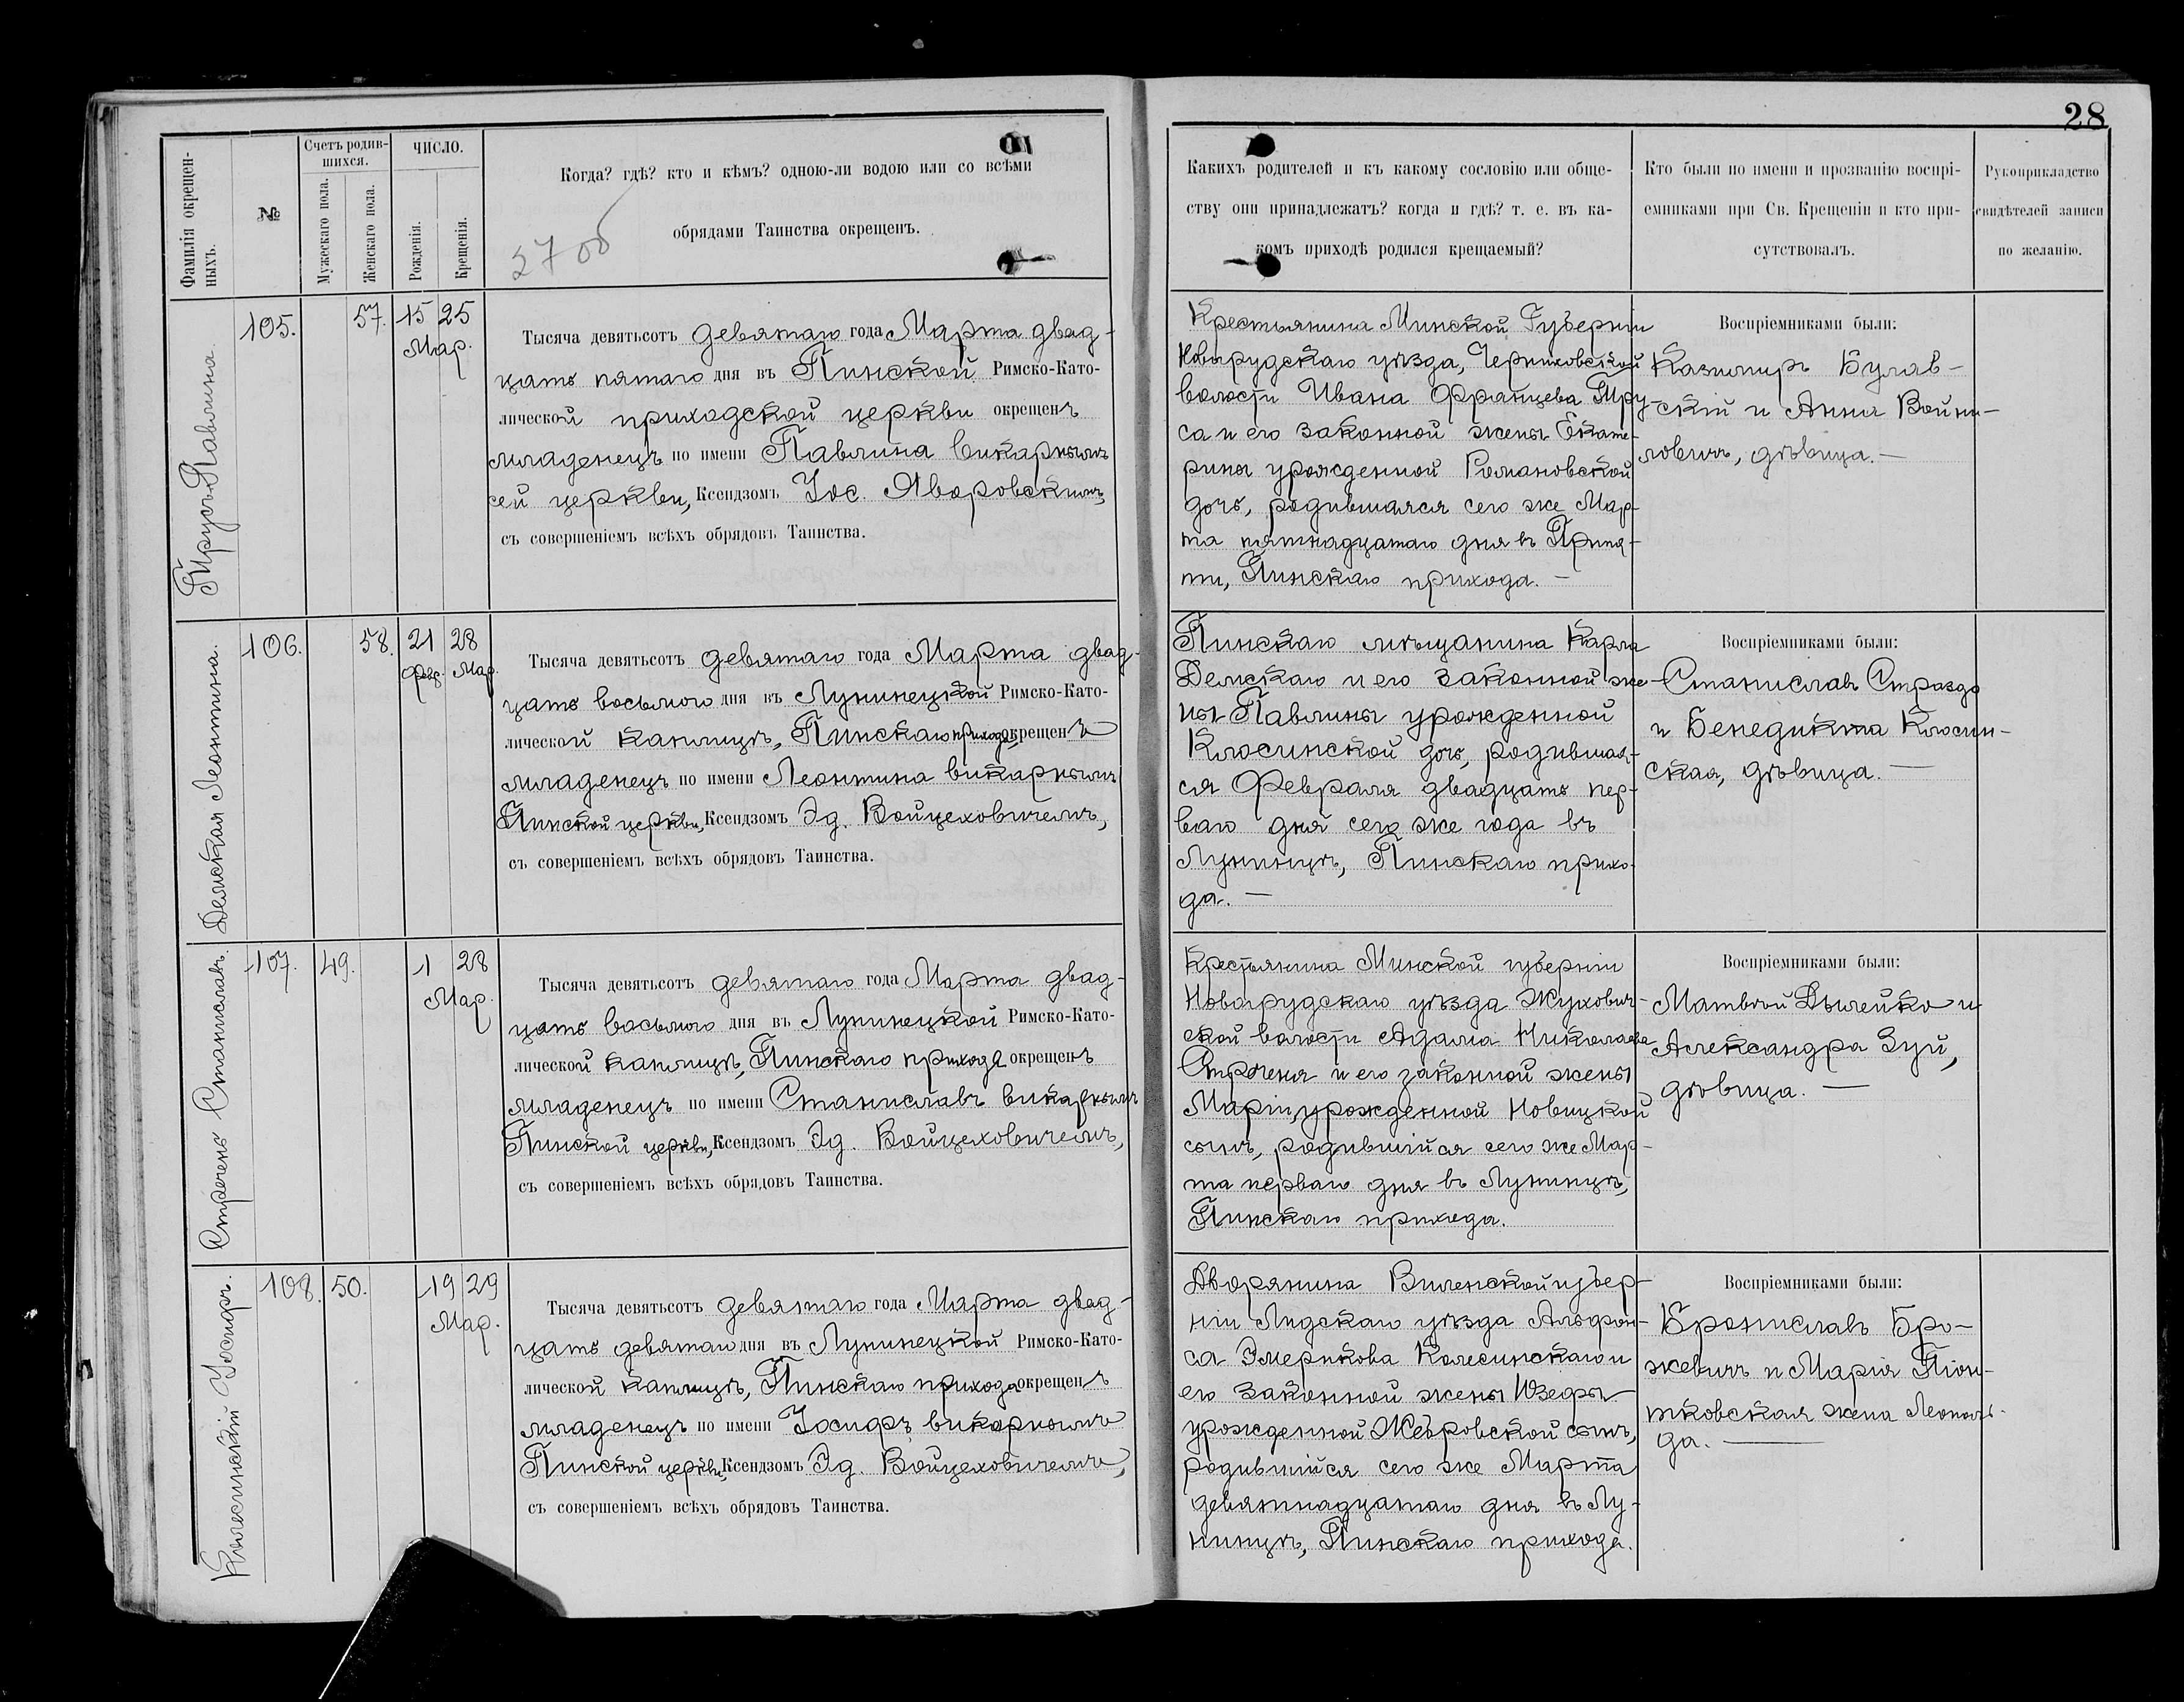 28
Фамилія окрещен-
ныхъ.
№
Счетъ родив-
шихся.
Мужескаго пола.
Женскаго пола.
ЧИСЛО.
Рожденія.
Крещенія.
Когда? гдѣ? кто и кѣмъ? одною-ли водою или со всѣми
обрядами Таинства окрещенъ.
Какихъ родителей и къ какому сословію или обще-
ству они принадлежатъ? когда и гдѣ? т. е. въ ка-
комъ приходѣ родился крещаемый?
Кто были по имени и прозванію воспрі-
емниками при Св. Крещеніи и кто при-
сутствовалъ.
Рукоприкладство
свидѣтелей записи
по желанію.
Трусъ Павлина.
105.
57.
15 25
Мар.
Тысяча девятьсотъ девятаго года Марта двад-
цать пятаго дня въ Пинской Римско-Като-
лической приходской церкви окрещенъ
младенецъ по имени Павлина викарнымъ
сей церкви, Ксендзомъ Іос. Яворовскимъ,
съ совершеніемъ всѣхъ обрядовъ Таинства.
Крестьянина Минской Губерніи
Новогрудскаго уѣзда, Черниховской
волости Ивана Францева Тру-
са и его законной жены Екате-
рины урожденной Романовской
дочь, родившаяся сего же Мар-
та пятнадцатаго дня въ Припя-
ти, Пинскаго прихода. —
Воспріемниками были:
Казимиръ Булав-
скій и Анна Войни-
ловичъ, дѣвица. —
Демская Леонтина.
106.
58.
21 28
Февр. Мар.
Тысяча девятьсотъ девятаго года Марта двад-
цать восьмого дня въ Лунинецкой Римско-Като-
лической каплицѣ, Пинскаго прихода, окрещенъ
младенецъ по имени Леонтина викарнымъ
Пинской церкви, Ксендзомъ Эд. Войцеховичемъ,
съ совершеніемъ всѣхъ обрядовъ Таинства.
Пинскаго мѣщанина Карла
Демскаго и его законной же-
ны Павлины урожденной
Клосинской дочь, родившая-
ся Февраля двадцать пер-
ваго дня сего же года въ
Лунинцѣ, Пинскаго прихо-
да. —
Воспріемниками были:
Станиславъ Страздо
и Бенедикта Клосин-
ская, дѣвица. —
Стречень Станиславъ.
107.
49.
1 28
Мар.
Тысяча девятьсотъ девятаго года Марта двад-
цать восьмого дня въ Лунинецкой Римско-Като-
лической каплицѣ, Пинскаго прихода окрещенъ
младенецъ по имени Станиславъ викарнымъ
Пинской церкви, Ксендзомъ Эд. Войцеховичемъ,
съ совершеніемъ всѣхъ обрядовъ Таинства.
Крестьянина Минской губерніи
Новогрудскаго уѣзда Жухович-
ской волости Адама Николаева
Стреченя и его законной жены
Маріи, урожденной Новицкой
сынъ, родившійся сего же Мар-
та перваго дня въ Лунинцѣ,
Пинскаго прихода.
Воспріемниками были:
Матвѣй Дылейко и
Александра Зуй,
дѣвица. —
Колесинскій Іосифъ.
108.
50.
19 29
Мар.
Тысяча девятьсотъ девятаго года Марта двад-
цать девятаго дня въ Лунинецкой Римско-Като-
лической каплицѣ, Пинскаго прихода окрещенъ
младенецъ по имени Іосифъ викарнымъ
Пинской церкви, Ксендзомъ Эд. Войцеховичемъ,
съ совершеніемъ всѣхъ обрядовъ Таинства.
Дворянина Виленской губер-
ніи Лидскаго уѣзда Альфон-
са Эмерикова Колесинскаго и
его законной жены Юзефы
урожденной Жебровской сынъ,
родившійся сего же Марта
девятнадцатаго дня въ Лу-
нинцѣ, Пинскаго прихода.
Воспріемниками были:
Брониславъ Бро-
жевичъ и Марія Піон-
тковская жена Леополь-
да. —